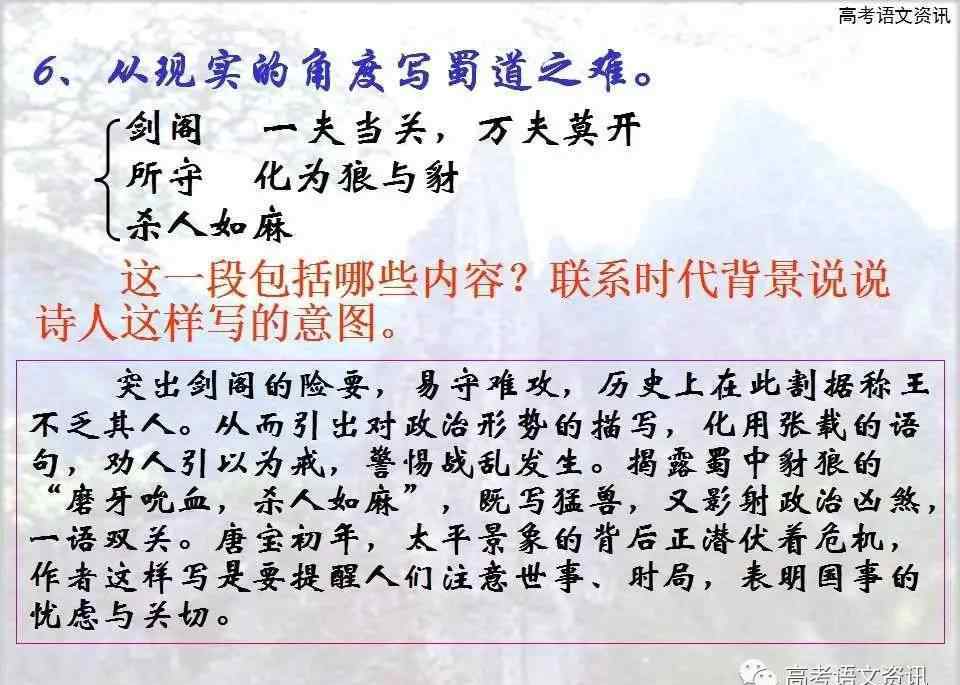 高考语文资讯
6、从现实的角度写蜀道之难。
剑阁 一夫当关，万夫莫开
所守 化为狼与豺
杀人如麻
这一段包括哪些内容？联系时代背景说说
诗人这样写的意图。
突出剑阁的险要，易守难攻，历史上在此割据称王
不乏其人。从而引出对政治形势的描写，化用张载的语
句，劝人引以为戒，警惕战乱发生。揭露蜀中豺狼的
“磨牙吮血，杀人如麻”，既写猛兽，又影射政治凶煞，
一语双关。唐宝初年，太平景象的背后正潜伏着危机，
作者这样写是要提醒人们注意世事、时局，表明国事的
忧虑与关切。
高考语文资讯